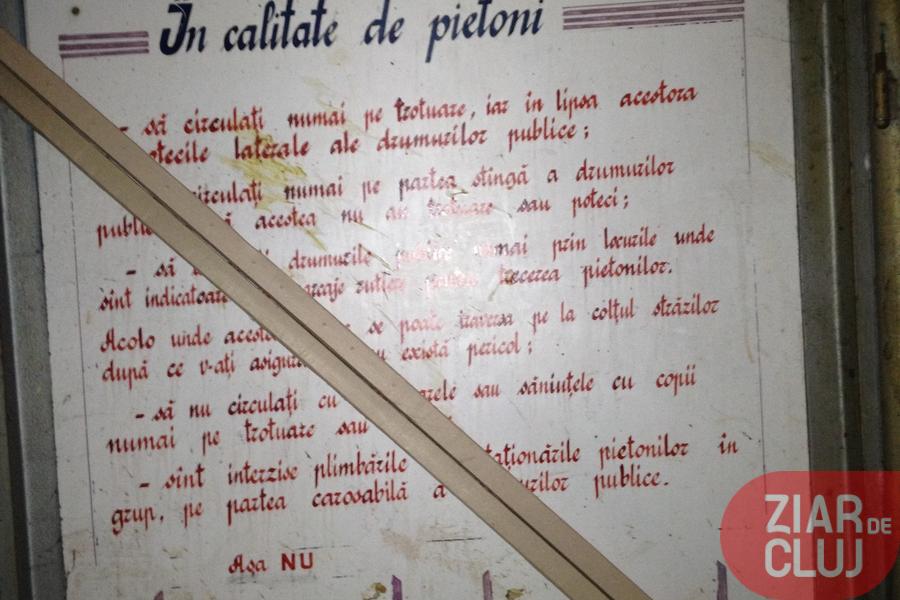 În calitate de pietoni
- să circulați numai pe trotuare, iar în lipsa acestora
potecile laterale ale drumurilor publice;
circulați numai pe partea stîngă a drumurilor
publice acestea nu au trotuare sau poteci;
- să drumurile publice numai prin locurile unde
sînt indicatoare marcaje rutiere pentru trecerea pietonilor.
Acolo unde acestea se poate traversa pe la colțul străzilor
după ce v-ați asigurat nu există pericol;
- să nu circulați cu sau săniuțele cu copii
numai pe trotuare sau
- sînt interzise plimbările staționările pietonilor în
grup, pe partea carosabilă a drumurilor publice.
Așa NU
ZIAR DE
CLUJ